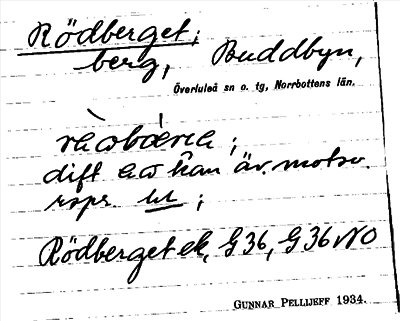 Rödberget;
berg, Buddbyn,
Överluleå sn o. tg, Norrbottens län.
dift kan äv. motsv.
rspr. ;
Rödberget ek, G36, G36 NO
GUNNAR PELLIJEFF 1934.